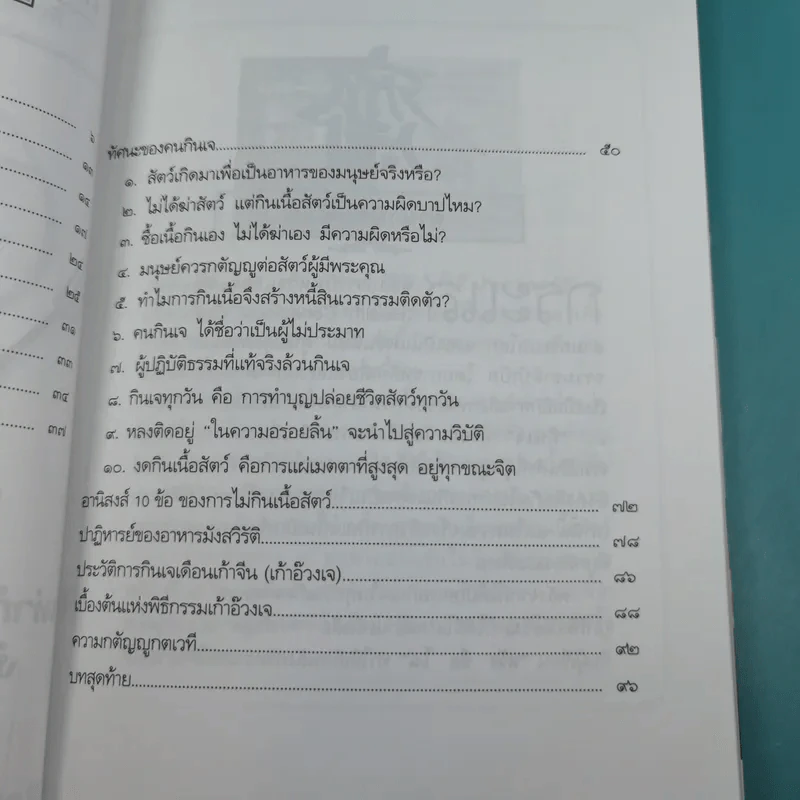 ๖
๑๓
๑๔
๑๗
๒๔
๒๕
๓๑
๓๓
๓๔
๓๗
ทัศนะของคนกินเจ.......................................................................... ๕๐
๑. สัตว์เกิดมาเพื่อเป็นอาหารของมนุษย์จริงหรือ?
๒. ไม่ได้ฆ่าสัตว์ แต่กินเนื้อสัตว์เป็นความผิดบาปไหม?
๓. ซื้อเนื้อกินเอง ไม่ได้ฆ่าเอง มีความผิดหรือไม่?
๔. มนุษย์ควรกตัญญูต่อสัตว์ผู้มีพระคุณ
๕. ทำไมการกินเนื้อจึงสร้างหนี้สินเวรกรรมติดตัว?
๖. คนกินเจ ได้ชื่อว่าเป็นผู้ไม่ประมาท
๗. ผู้ปฏิบัติธรรมที่แท้จริงล้วนกินเจ
๘. กินเจทุกวัน คือ การทำบุญปล่อยชีวิตสัตว์ทุกวัน
๙. หลงติดอยู่ "ในความอร่อยลิ้น" จะนำไปสู่ความวิบัติ
๑๐. งดกินเนื้อสัตว์ คือการแผ่เมตตาที่สูงสุด อยู่ทุกขณะจิต
อานิสงส์ 10 ข้อ ของการไม่กินเนื้อสัตว์.................................................. ๗๒
ปาฏิหารย์ของอาหารมังสวิรัติ................................................................ ๗๘
ประวัติการกินเจเดือนเก้าจีน (เก้าอ๊วงเจ)................................................ ๘๖
เบื้องต้นแห่งพิธีกรรมเก้าอ๊วงเจ.............................................................. ๘๘
ความกตัญญูกตเวที............................................................................ ๙๒
บทสุดท้าย........................................................................................ ๙๖